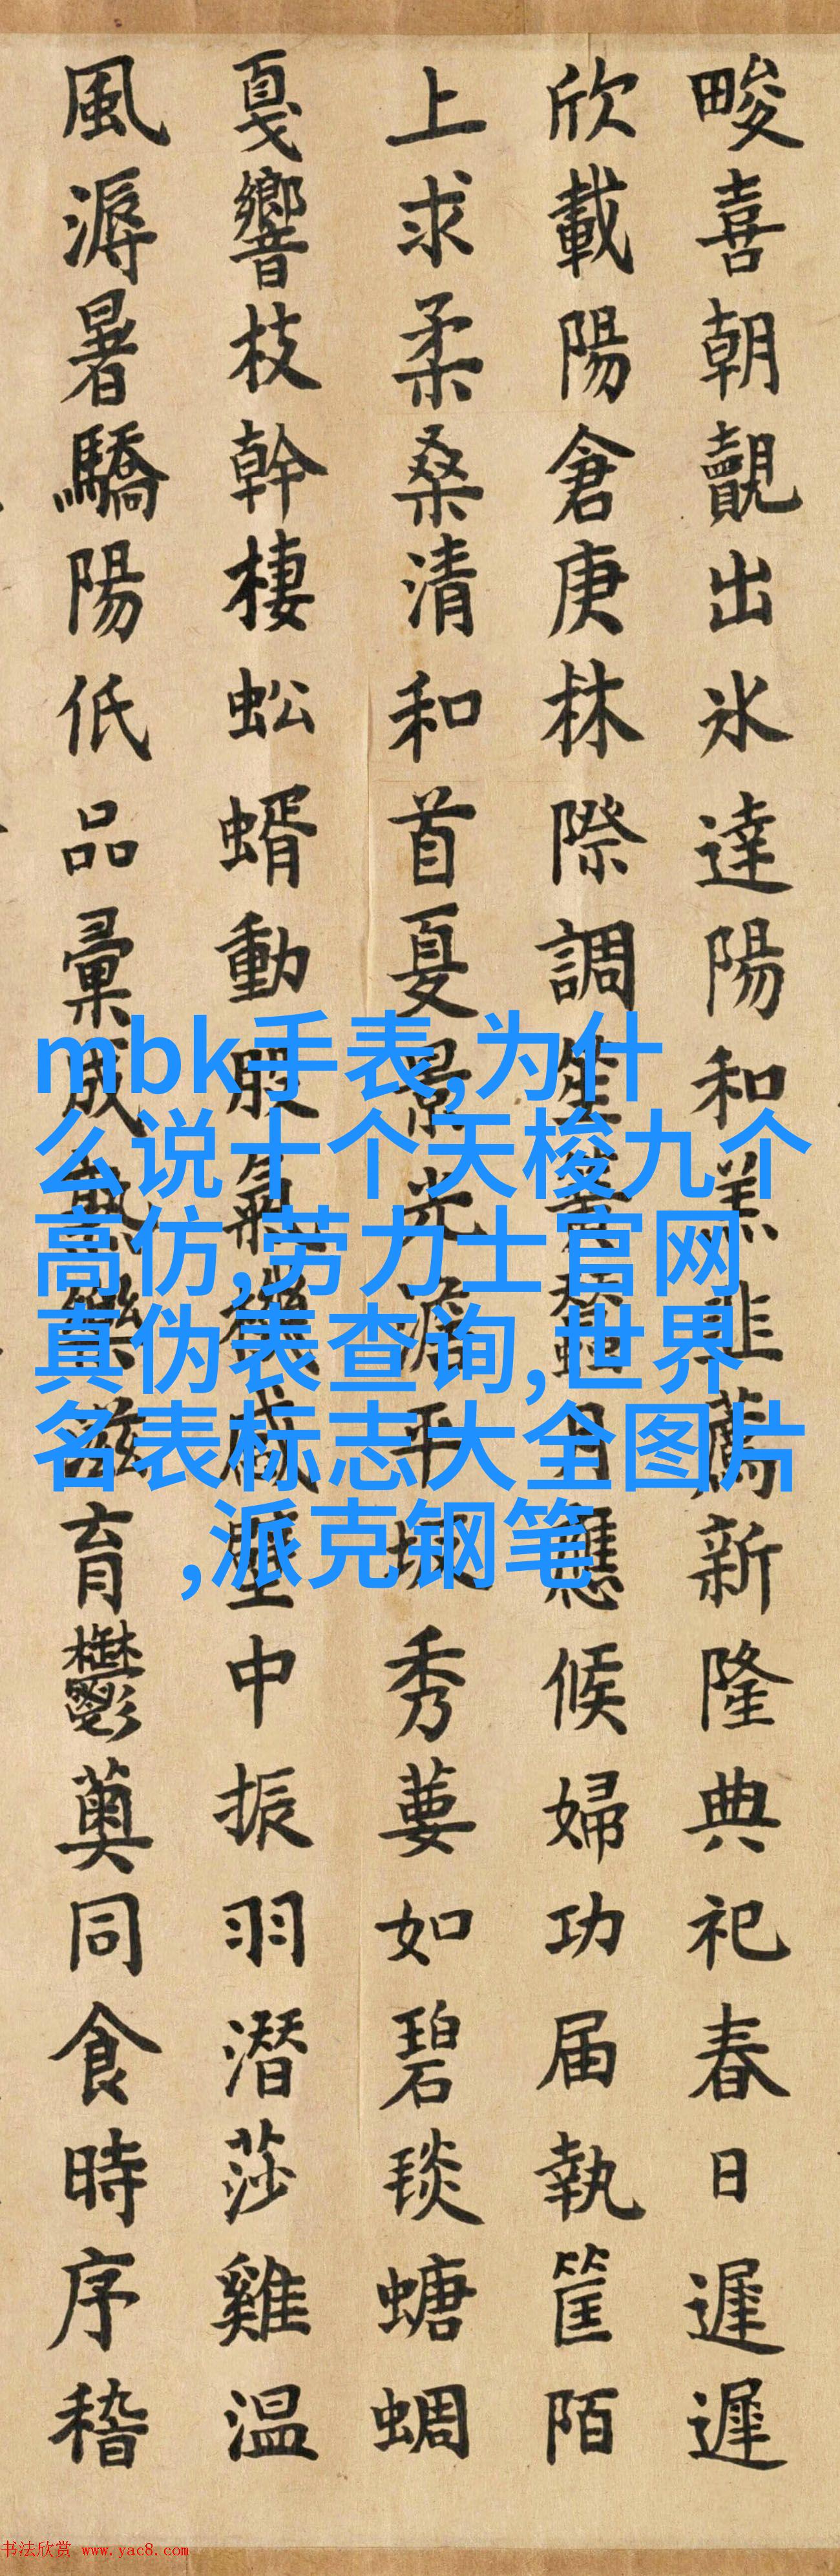 畯喜朝覿出氷達陽和羔韭薦新隆典祀春日遲遲
欣載陽倉庚林際調笙蠶月應候婦功届執筐陌
上求柔桑清和首夏景光澹平秀葽如碧琰螗蜩
戛響枝幹棲蚣蝑動股氣機感壁中振羽潛莎雞温
風溽暑驕陽低品彙滋育鬱薁同食時序稽
mbk手表,为什
么说十个天梭九个
高仿,劳力士官网
真伪表查询,世界
名表标志大全图片
,派克钢笔
书法欣赏 www.yac8.com